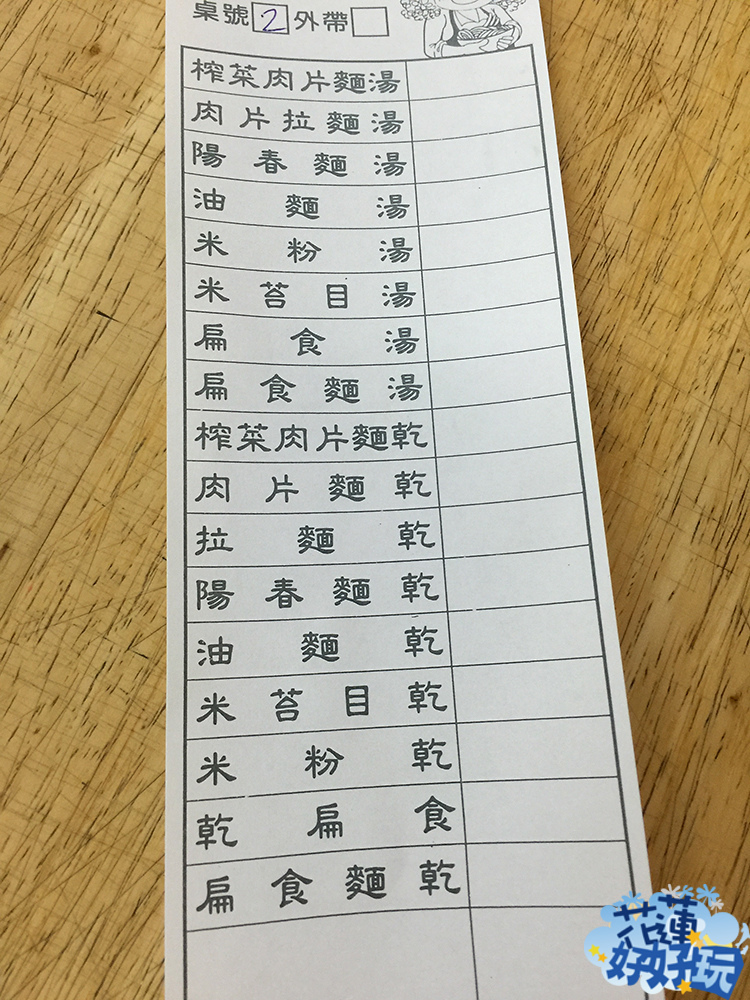 桌號 2 外帶
榨菜肉片麵湯
肉片拉麵湯
陽春麵湯
油麵湯
米粉湯
米苔目湯
扁食湯
扁食麵湯
榨菜肉片麵乾
肉片麵乾
拉麵乾
陽春麵乾
油麵乾
米苔目乾
米粉乾
乾扁食
扁食麵乾
花蓮
好好玩